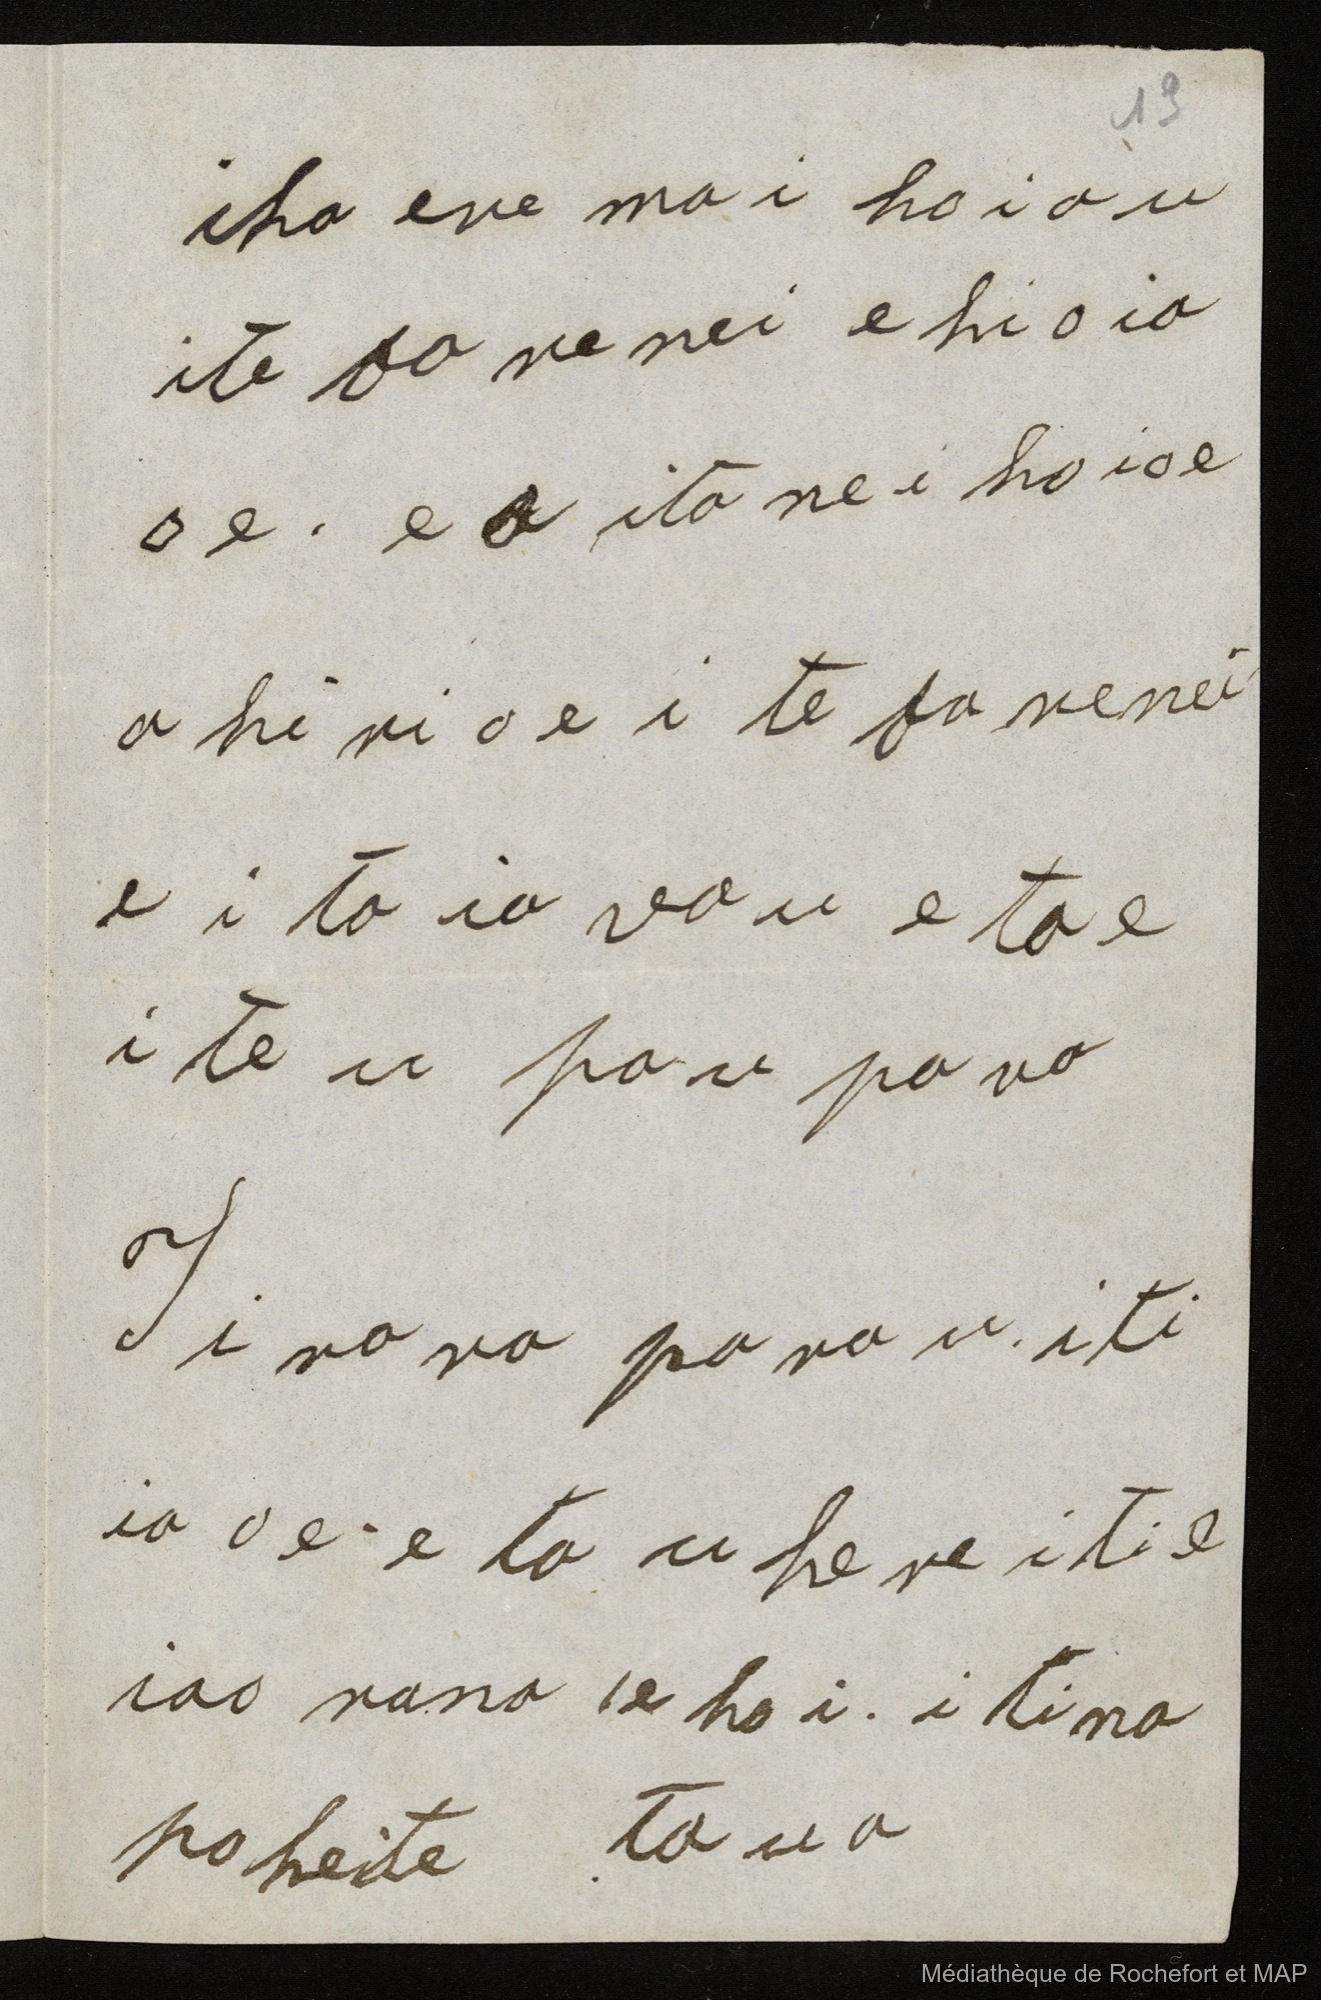 19
iha ere mai hoiau
ite fa re nei e hi o ia
oe. e a ita ne i ho ioe
a hi ri oe i te fa renei
e i ta ia vau e ta e
i te u pau para
Ti ra ra para u. iti
ia oe - e ta u he re iti e
iao rana ie hoi. i tina
poheite taua
Médiathèque de Rochefort et MAP